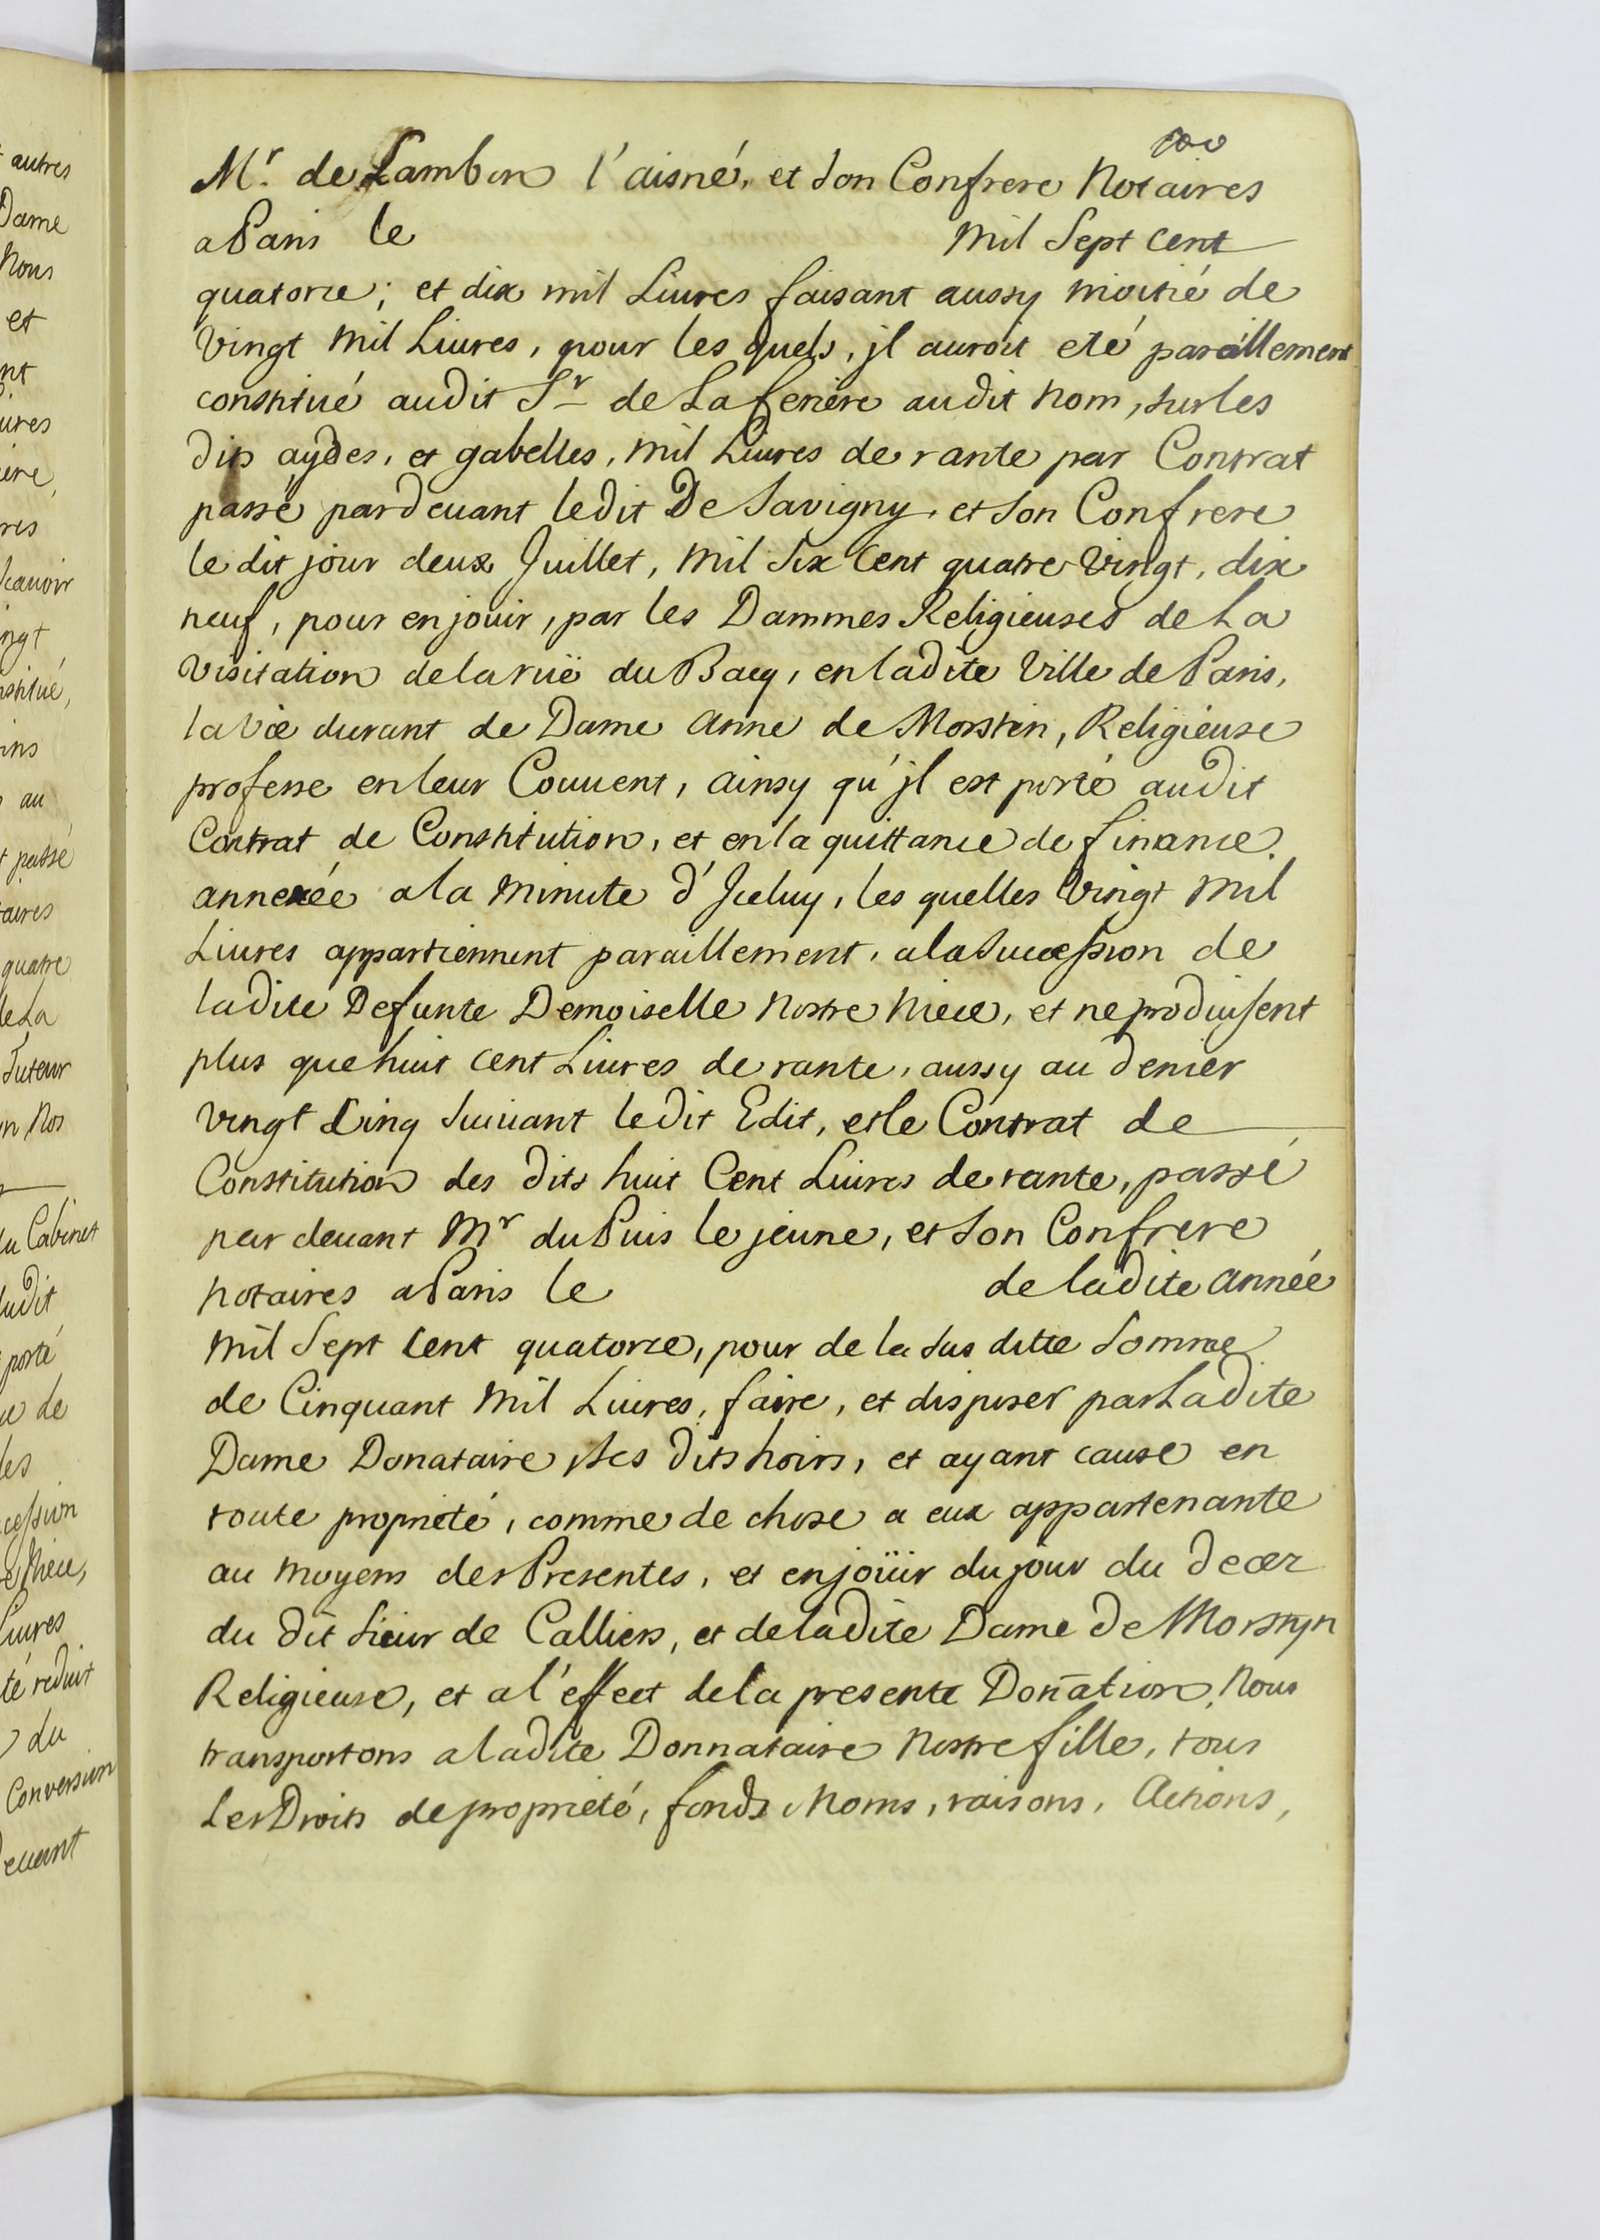 Mr. de Lambon l'aisné, et Son Confrere Notaires
a Paris le mil Sept cent
quatorze; et dix mil Liures faisant aussy moitié de
Vingt mil Liures, pour les quels, jl auroit eté paraillement
constitué audit Sr de La feriere audit nom, sur les
dits aydes, et gabelles, mil Liures de rante par Contrat
passé pardeuant ledit De Savigny, et Son Confrere
le dit jour deux Juillet, mil Six Cent quatre Vingt, dix
neuf, pour en jouir, par les Dammes Religieuses de La
Visitation de la ruë du Bacq, en ladite Ville de Paris,
la Vie durant de Dame Anne de Morstin, Religieuse
professe en leur Couuent, ainsy qu'jl est porté audit
Contrat de Constitution, et en la quittance de finance
annexée a la minute d'Jceluy, les quelles Vingt mil
Liures appartiennent paraillement, a la Succession de
ladite Defunte Demoiselle Nostre Niece, et ne produisent
plus que huit cent Liures de rante, aussy au denier
Vingt Cinq Suiuant ledit Edit, et le Contrat de
Constitution des dits huit Cent Liures de rante, passé
par deuant Mr du Puis le jeune, et Son Confrere
notaires a Paris le de ladite année
mil Sept Cent quatorze, pour de la Sus ditte Somme
de Cinquant mil Liures, faire, et disposer par Ladite
Dame Donataire, Ses dits hoirs, et ayant cause en
toute proprieté, comme de chose a eux appartenante
au moyens des Presentes, et en joüir du jour du decez
du dit Sieur de Calliers, et de ladite Dame de Morstyn
Religieuse, et a l'effect de la presente Don̄ation, Nous
transportons a ladite Donnataire Nostre fille, tous
Les Droits de proprieté, fonds, Noms, raisons, Actions,
autres
Dame
Nous
et
nt
ures
ere,
res
scauoir
ingt
nstitué,
ins
au
passé
taires
quatre
de La
Tuteur
n Nos
du Cabinet
audit
porté
de
les
cession
Niece,
Liures
té reduit
du
Conversion
Deuant